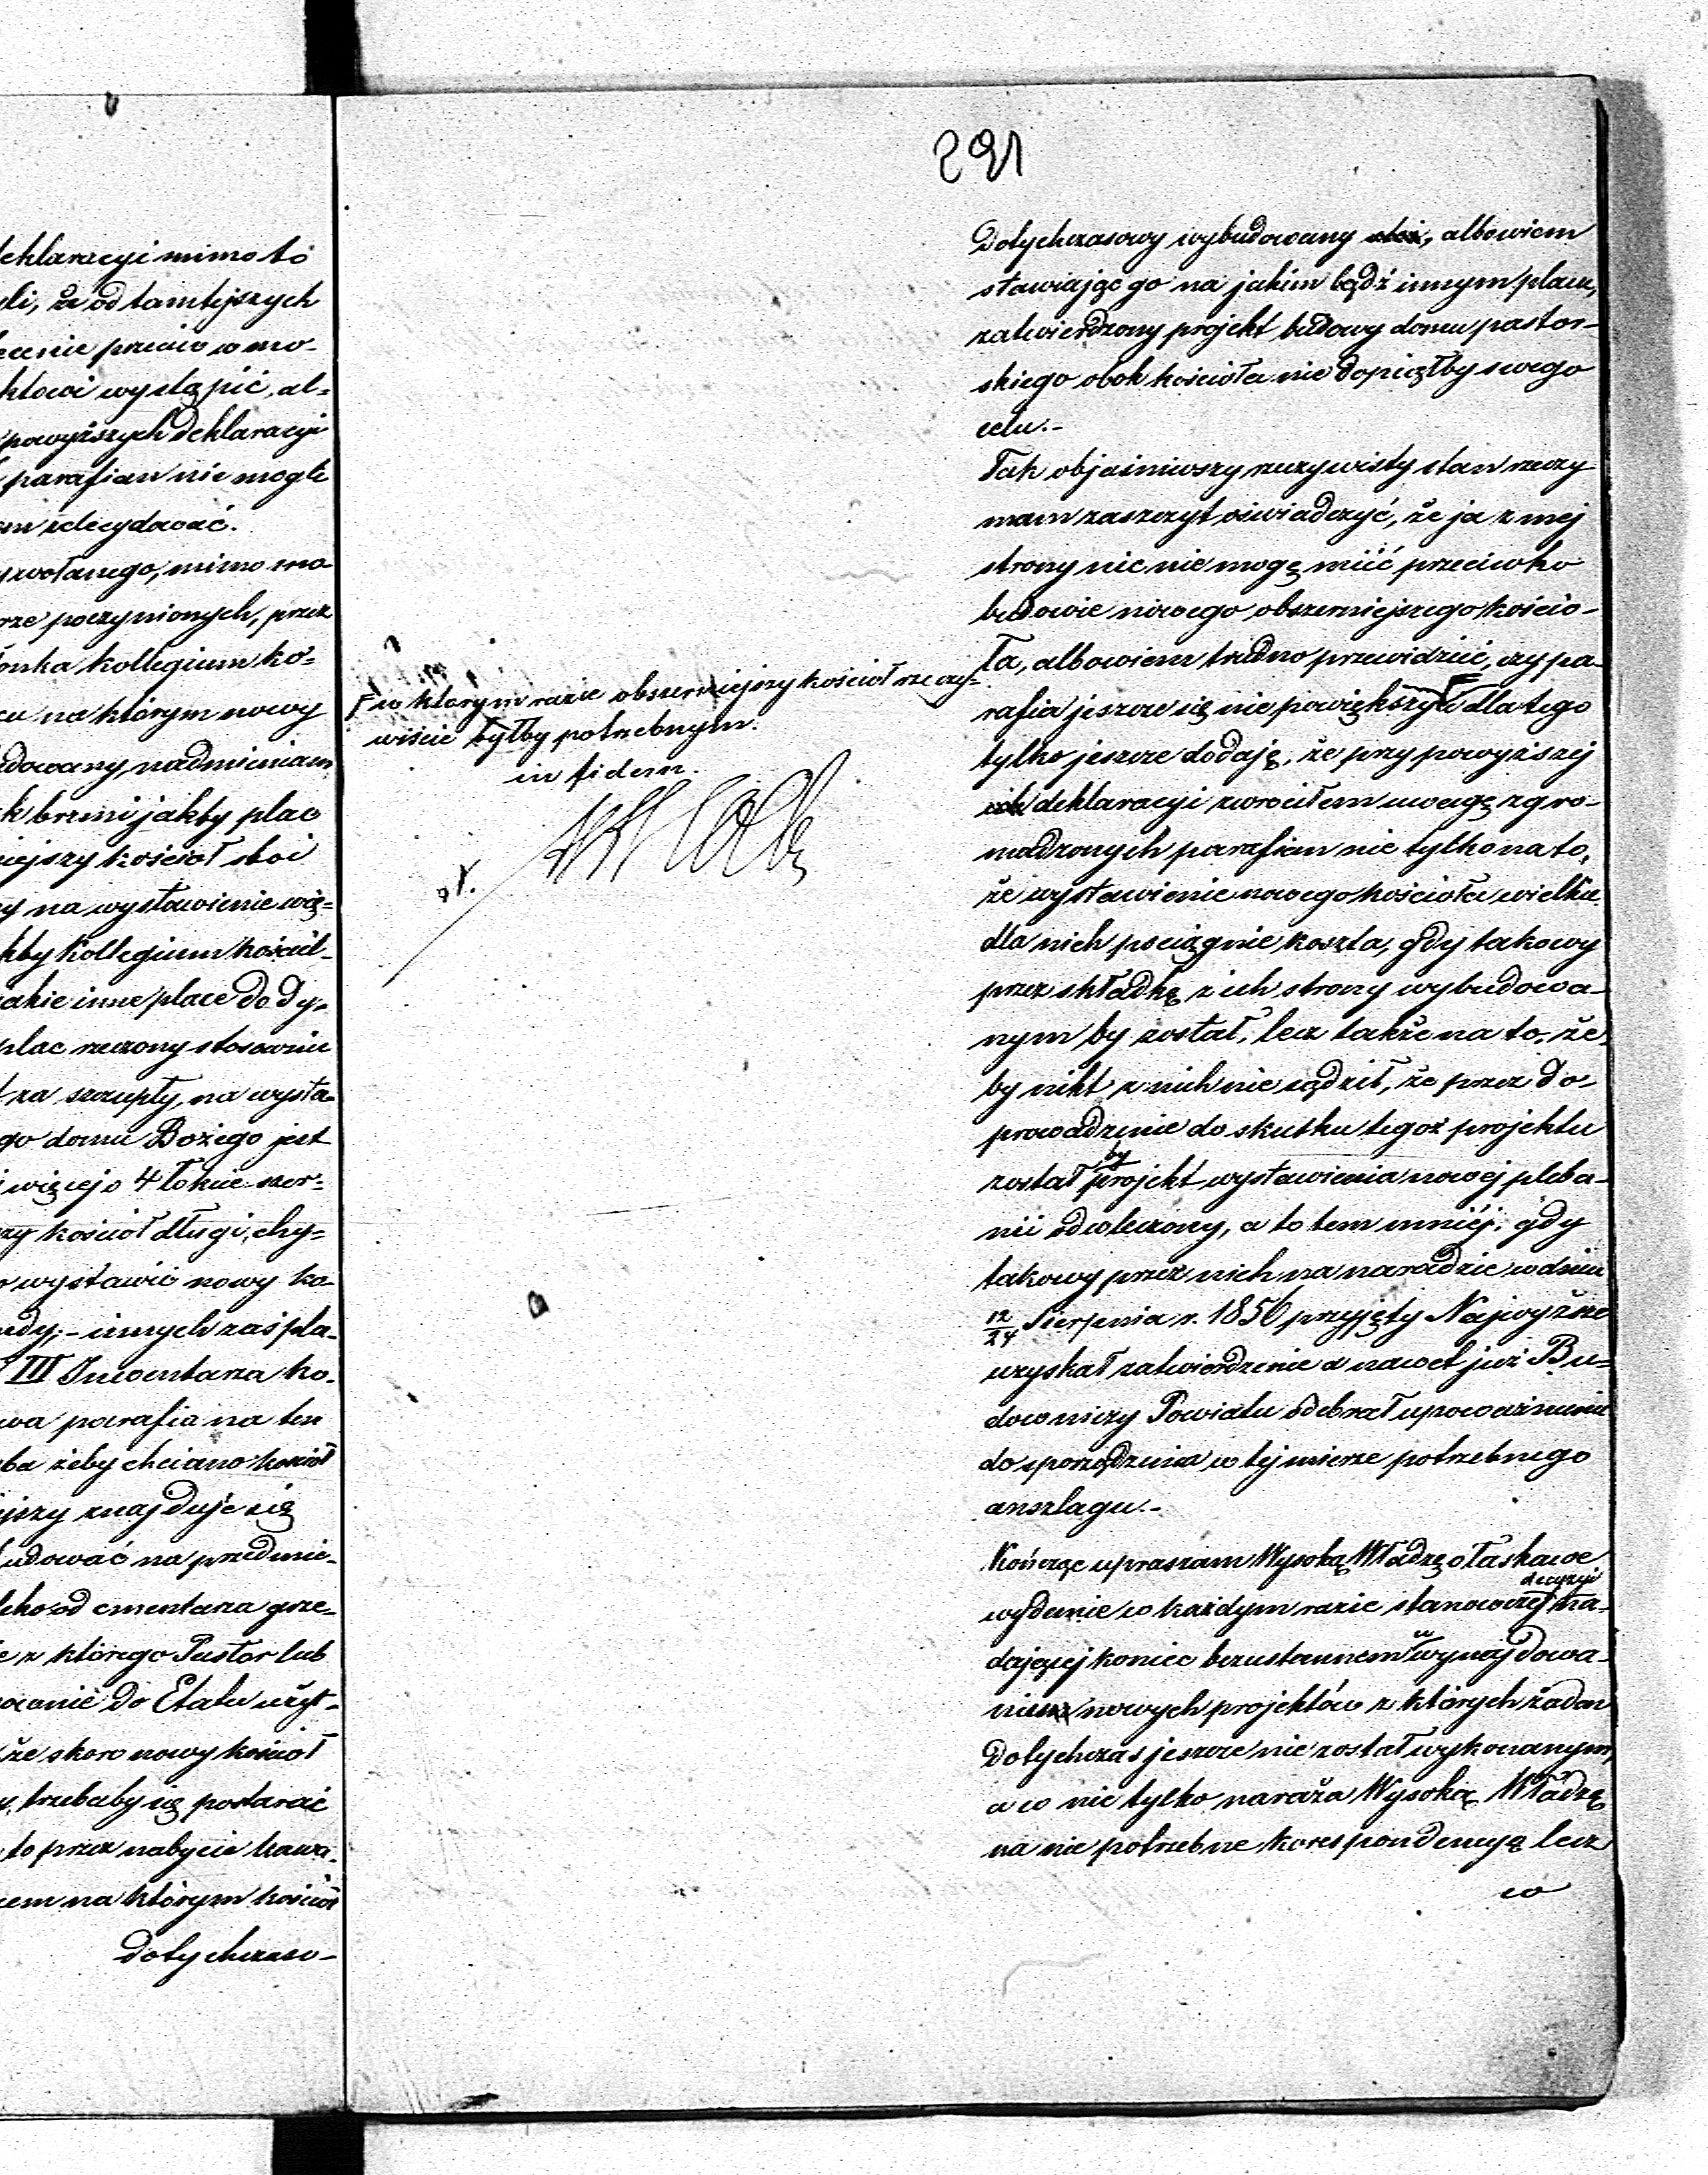 291
deklaracyi mimo to
yli, że od tamtejszych
ecenie przeciw w mo-
ktowi wystąpić, al-
powyższych deklaracyi
parafian nie mogłe
em zdecydować.
zwołanego, mimo mo
rze poczynionych, przez
onka kollegium ko-
cu na którym nowy
udowany, nadmieniam
k brzmi jakby plac
niejszy kościół stoi
ny na wystawienie wię-
kby Kollegium kościel-
jakie inne place do dy-
plac rzeczony stosownie
t za szczupły, na wysta-
go domu Bożego jest
i więcej o 4 łokcie szer-
zy kościół długi, chy-
o wystawić nowy ko-
edy; - innych zaś pla-
III Inwentarza ko-
wa parafia na ten
ba żeby chciano kościół
ejszy znajduje się
udować na przedmie-
leko od cmentarza grze-
e z którego Pastor lub
wanie do Etatu użyt-
że skoro nowy kościół
y, trzebaby się postarać
to przez nabycie kawa-
cem na którym kościół
dotychczaso-
Dotychczasowy wybudowany, albowiem
stawiając go na jakim bądź innym placu,
zatwierdzony projekt budowy domu pastor-
skiego obok kościoła nie dopiąłby swego
celu.-
Tak objaśniwszy rzeczywisty stan rzeczy
mam zaszczyt oświadczyć, że ja z mej
strony nic nie mogę mieć przeciwko
budowie nowego obszerniejszego kościo-
ła, albowiem trudno przewidzieć, czy pa-
rafia jeszcze się nie powiększy F dla tego
tylko jeszcze dodaję, że przy powyższej
deklaracyi zwróciłem uwagę zgro-
madzonych parafian nie tylko na to,
że wystawienie nowego kościoła wielkie
dla nich pociągnie koszta, gdy takowy
przez składkę z ich strony wybudowa-
nym by został, lecz także na to, że-
by nikt z nich nie sądził, że przez do-
prowadzenie do skutku tegoż projektu
został by projekt wystawienia nowej pleba-
nii odwleczony, a to tem mniej, gdy
takowy przez nich na naradzie w dniu
12/24 Sierpnia r. 1856 przyjęty Najwyższe
uzyskał zatwierdzenie a nawet już Bu-
downiczy Powiatu odebrał upoważnienie
do sporządzenia w tej mierze potrzebnego
anszlagu.-
Kończąc upraszam Wysoką Władzę o łaskawe
wydanie w każdym razie stanowczej decyzyi na-
dającej koniec bezustannemu wynajdowa-
niu nowych projektów z których żaden
dotychczas jeszcze nie został wykonanym,
a co nie tylko naraża Wysoką Władzę
na nie potrzebne korespondencyą lecz
co
F w którym razie obszerniejszy kościół rzeczy-
wiście byłby potrzebnym.
in fidem.